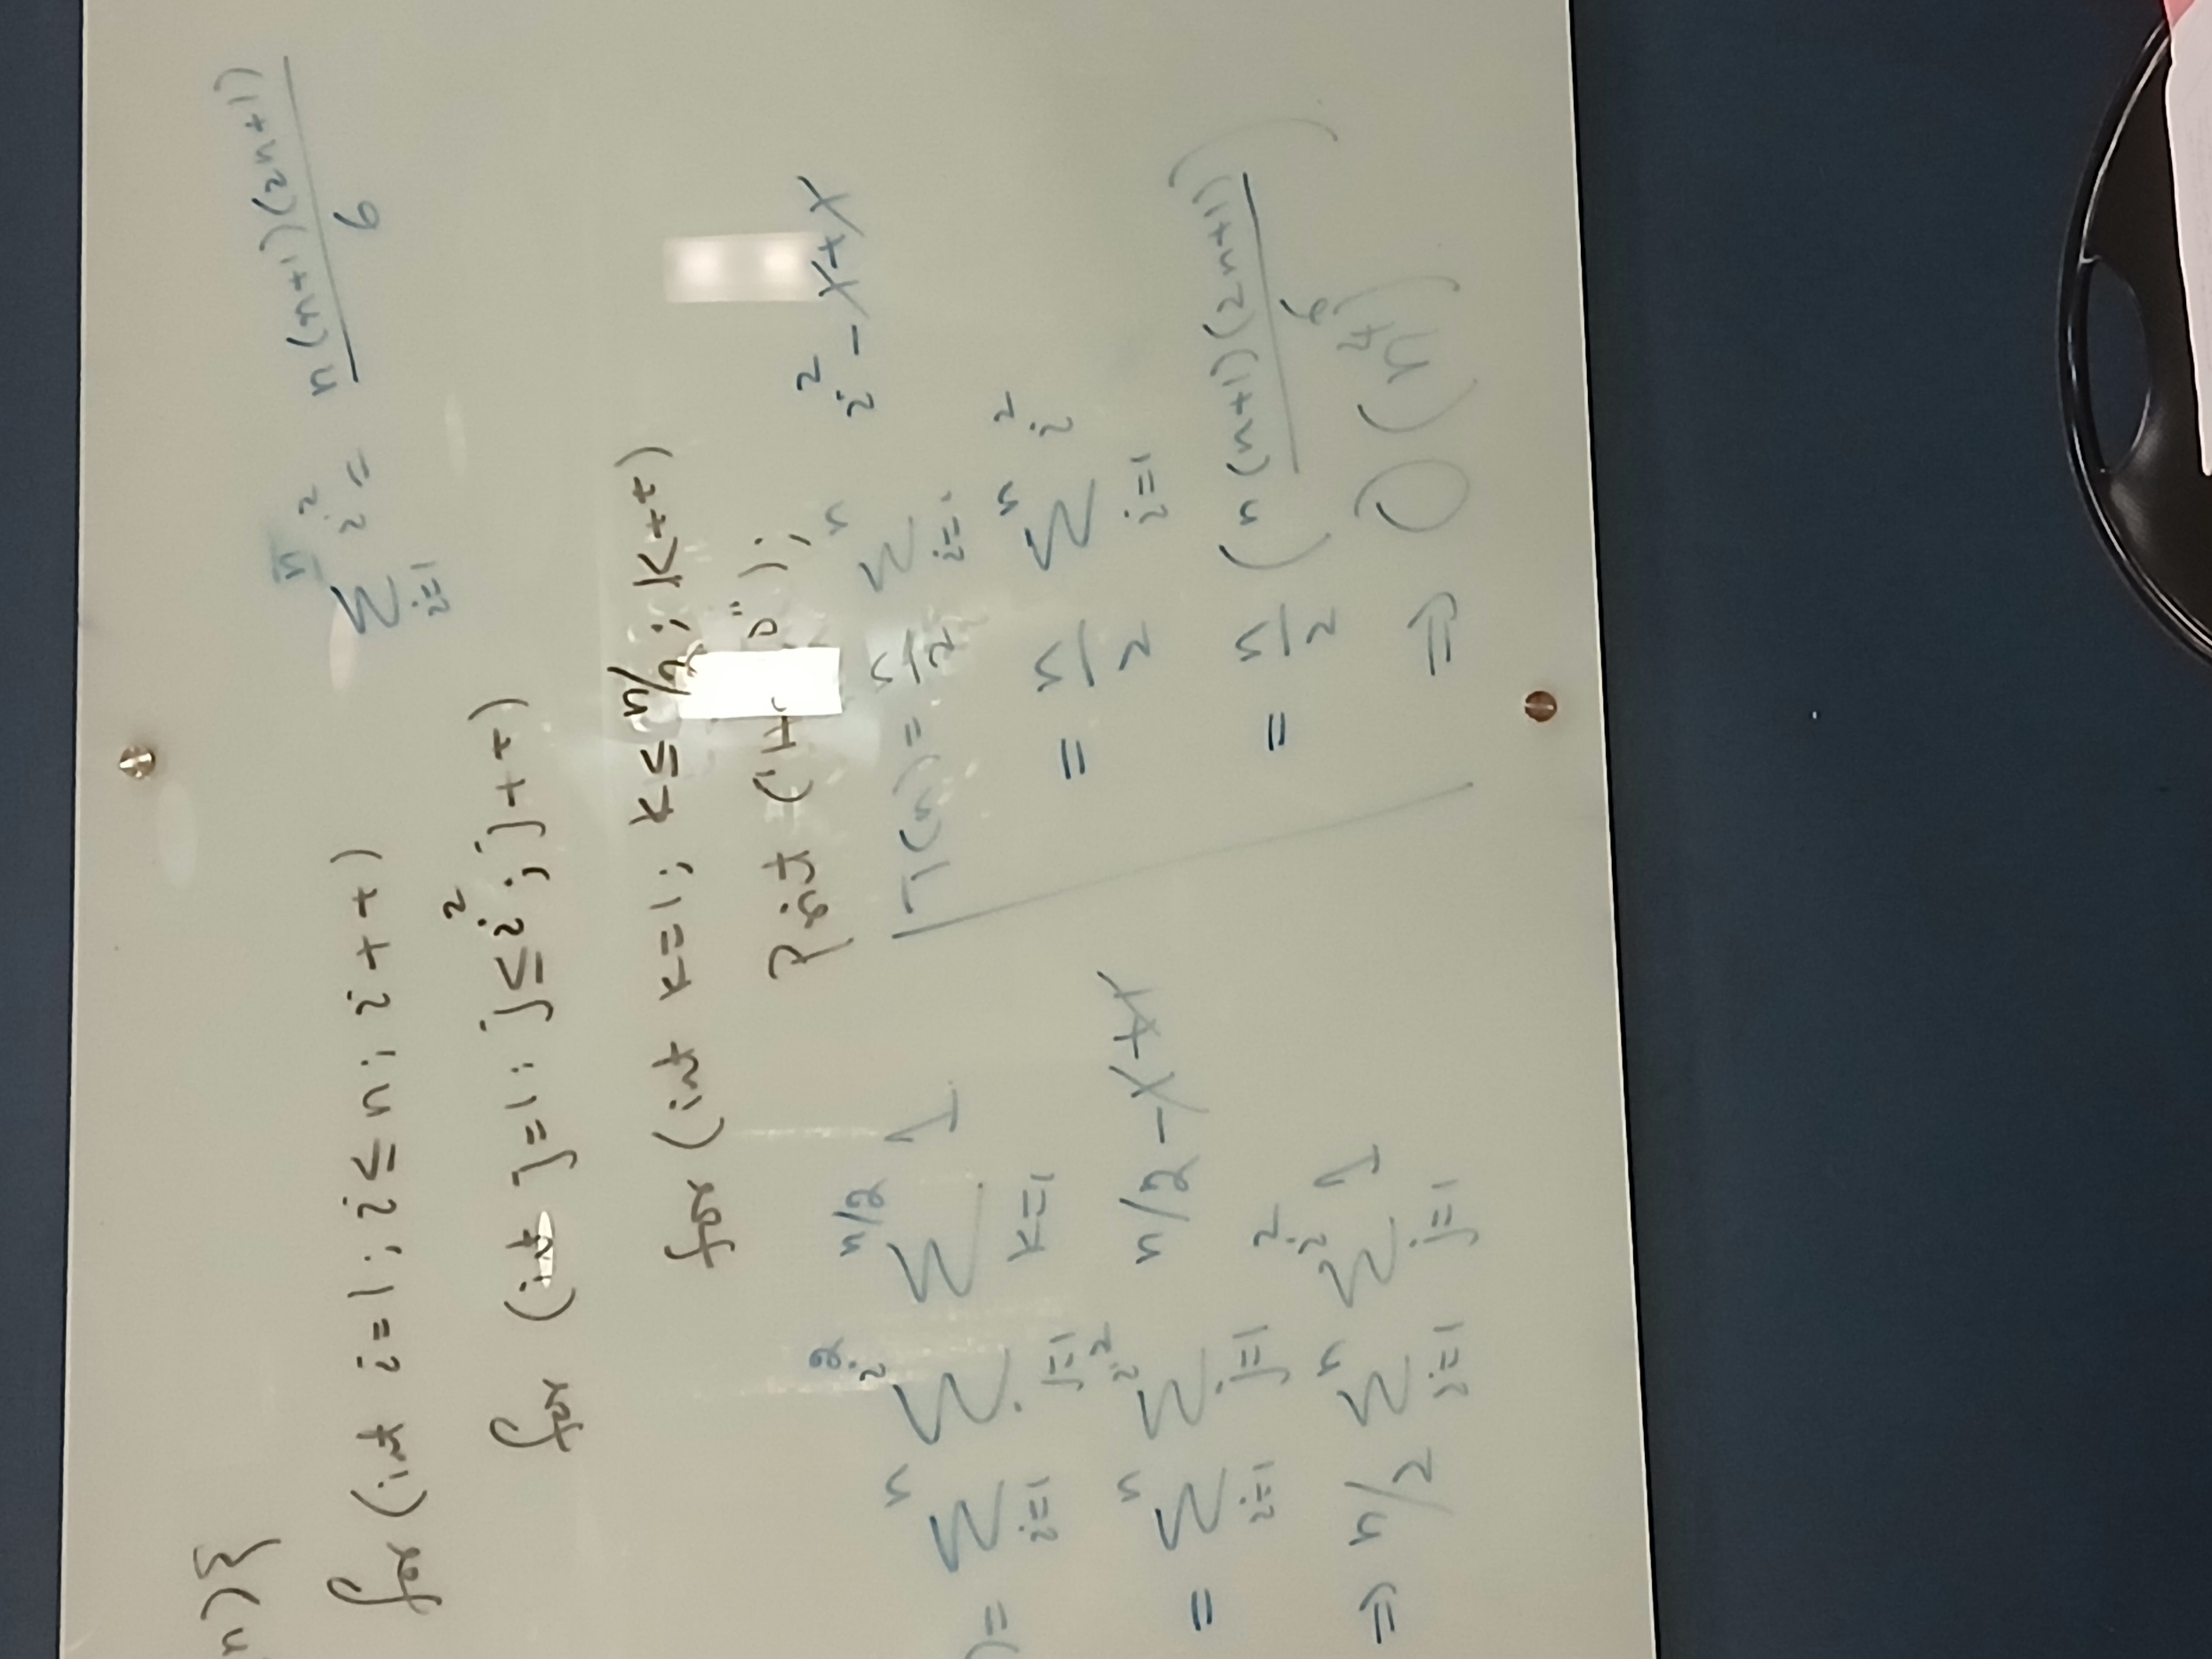 n){
for(int i=1; i≤n; i++)
for (int j=1; j≤i²; j++)
for (int k=1; k≤n/2; k++)
Print ("
o");
n
Σ i² = n(n+1)(2n+1)/6
i=1
)= Σ_{i=1}^{n} Σ_{j=1}^{i²} Σ_{k=1}^{n/2} 1
= Σ_{i=1}^{n} Σ_{j=1}^{i²} n/2 -1+1
⇒ n/2 Σ_{i=1}^{n} Σ_{j=1}^{i²} 1
T(n)= n/2 Σ_{i=1}^{n} i² -1+1
= n/2 Σ_{i=1}^{n} i²
= n/2 (n(n+1)(2n+1)/6)
⇒ O(n⁴)